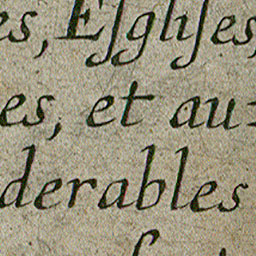 es, Eſgliſes,
es, et au=
derables